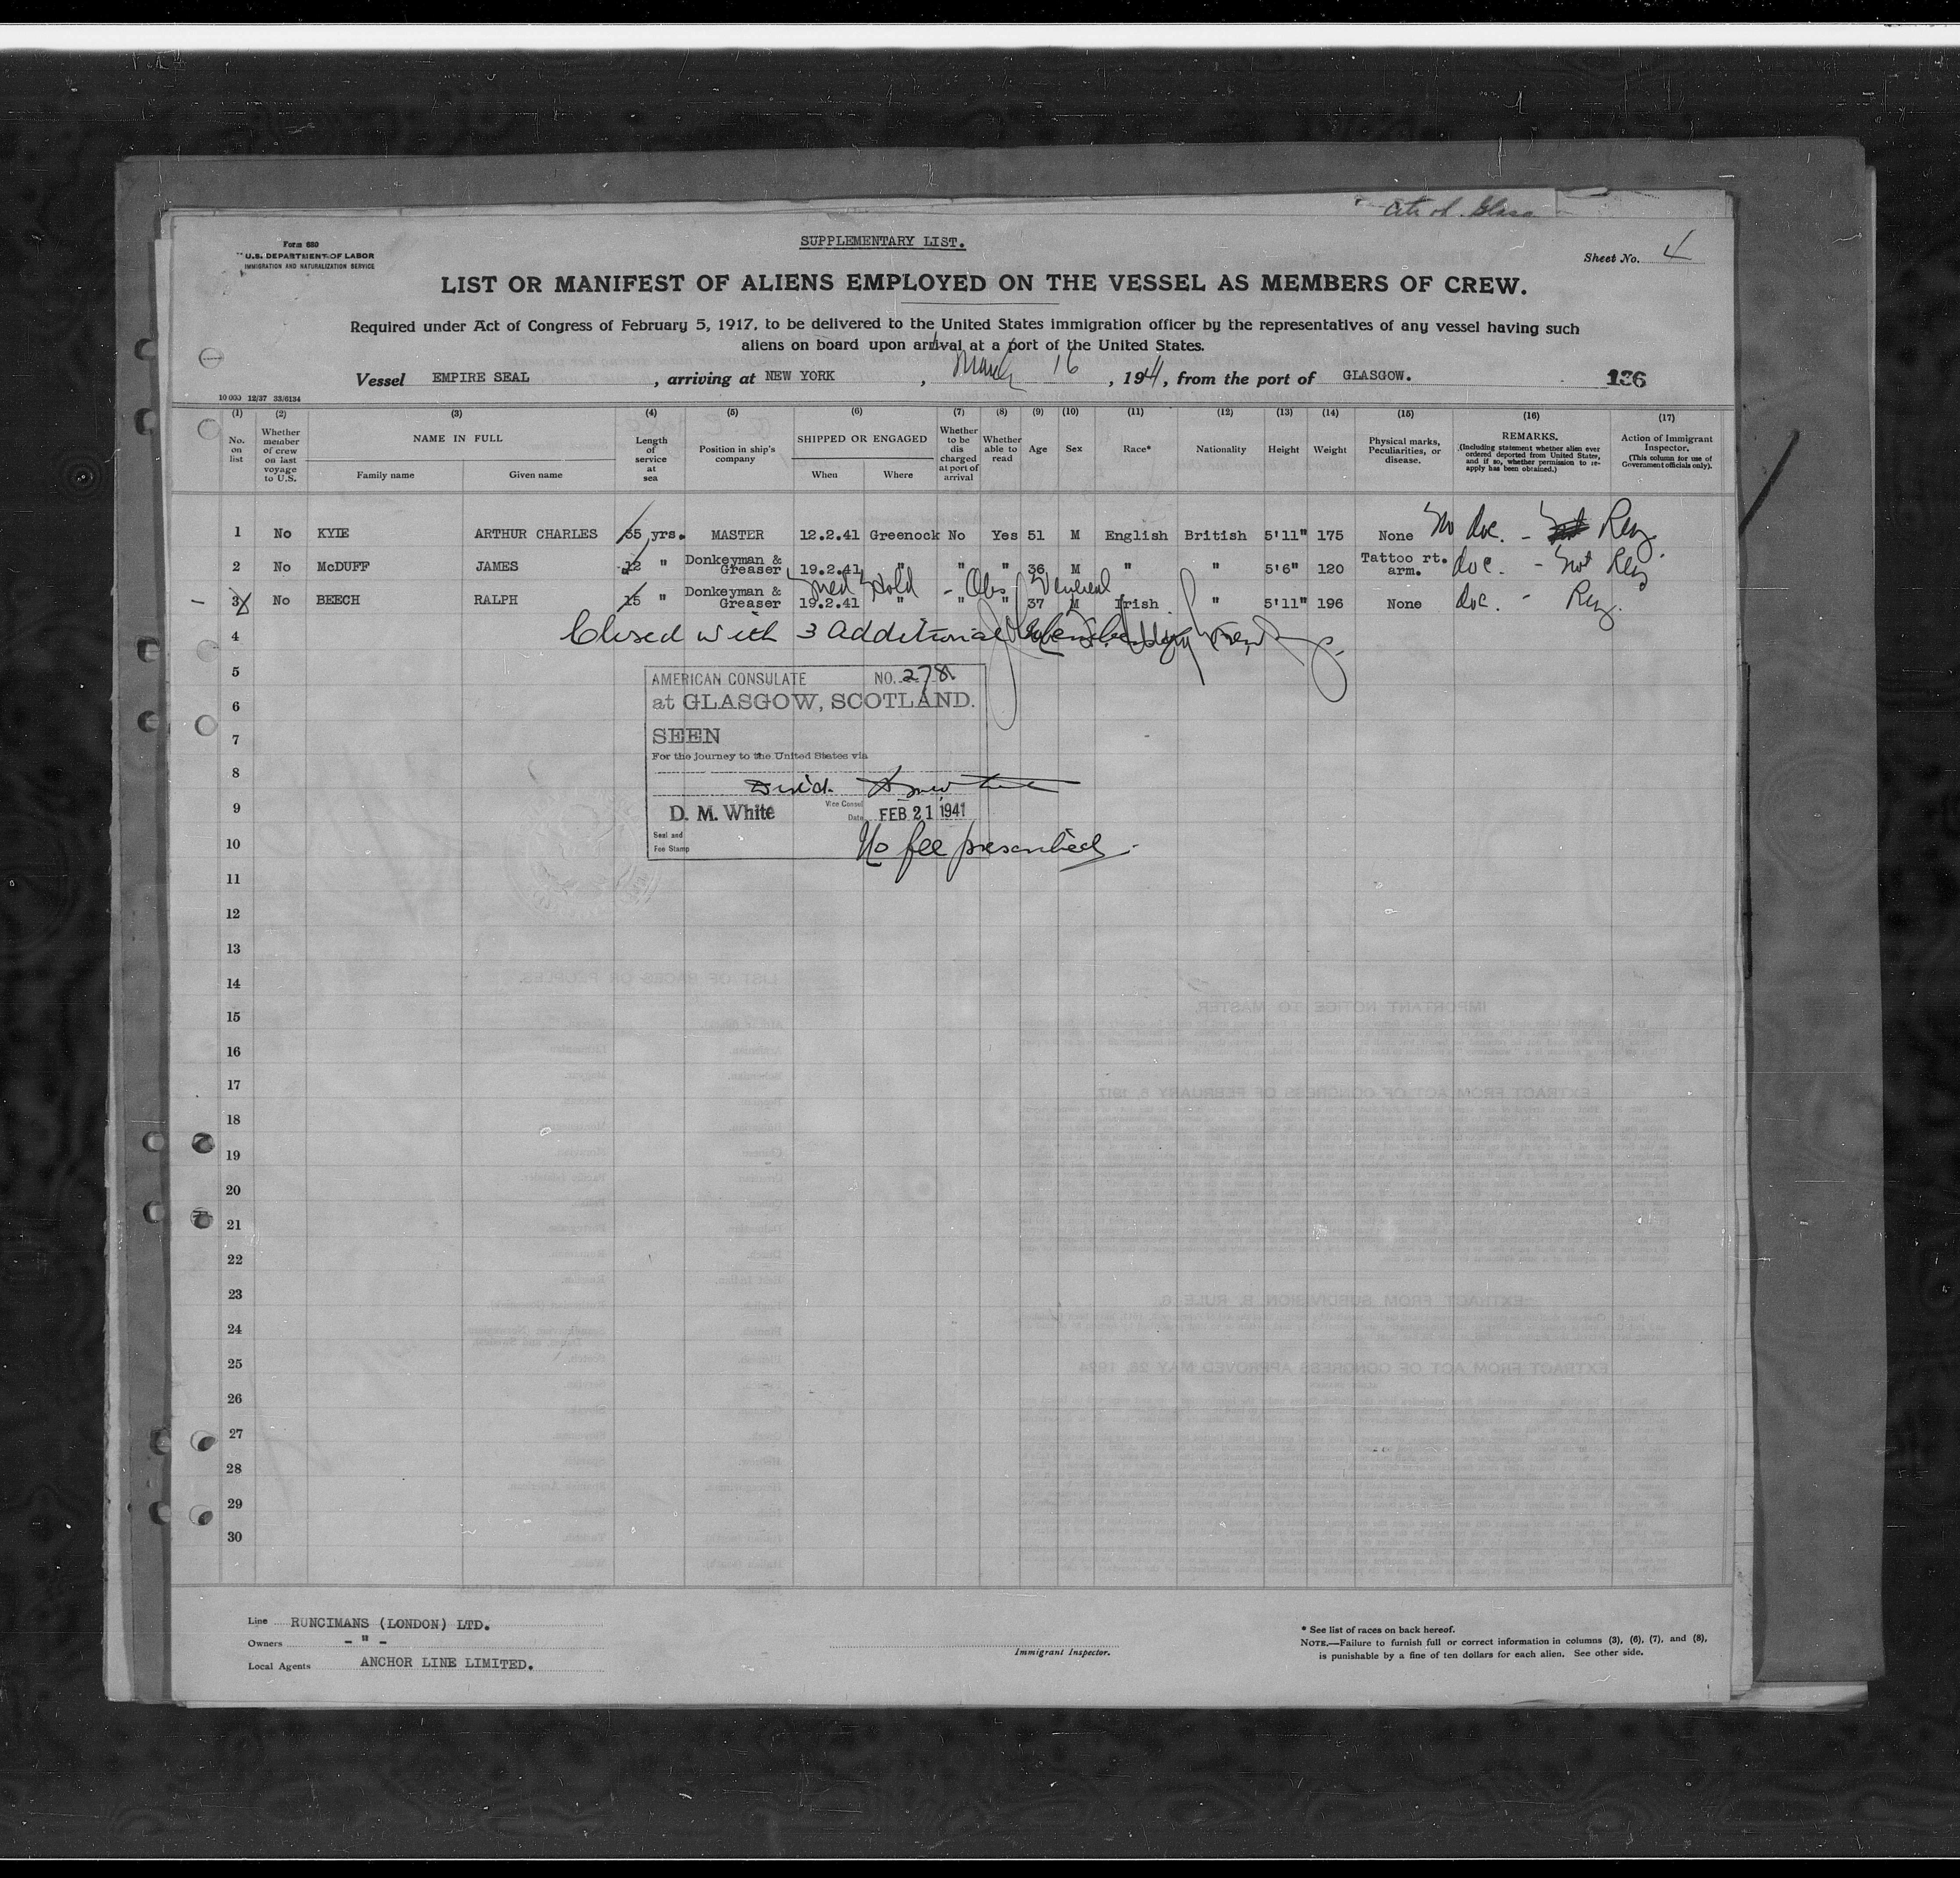 City of Glasg
SUPPLEMENTARY LIST.
Form 680
U.S. DEPARTMENT OF LABOR
IMMIGRATION AND NATURALIZATION SERVICE
Sheet No. 4
LIST OR MANIFEST OF ALIENS EMPLOYED ON THE VESSEL AS MEMBERS OF CREW.
Required under Act of Congress of February 5, 1917, to be delivered to the United States immigration officer by the representatives of any vessel having such
aliens on board upon arrival at a port of the United States.
Vessel EMPIRE SEAL, arriving at NEW YORK, March 16, 1941, from the port of GLASGOW. 136
10 000 12/37 33/6134
(1) (2) (3) (4) (5) (6) (7) (8) (9) (10) (11) (12) (13) (14) (15) (16) (17)
No. on list
Whether member of crew on last voyage to U.S.
NAME IN FULL
Family name
Given name
Length of service at sea
Position in ship's company
SHIPPED OR ENGAGED
When
Where
Whether to be dis charged at port of arrival
Whether able to read
Age
Sex
Race*
Nationality
Height
Weight
Physical marks, Peculiarities, or disease.
REMARKS.
(Including statement whether alien ever ordered deported from United States, and if so, whether permission to re-apply has been obtained.)
Action of Immigrant Inspector.
(This column for use of Government officials only).
1 No KYIE ARTHUR CHARLES 35 yrs. MASTER 12.2.41 Greenock No Yes 51 M English British 5'11" 175 None No doc. - Reg.
2 No McDUFF JAMES 12 " Donkeyman & Greaser 19.2.41 " " " 36 M " " 5'6" 120 Tattoo rt. arm. doc. - not Reg
Med Hold - Obs Venereal
3 No BEECH RALPH 15 " Donkeyman & Greaser 19.2.41 " " " 37 M Irish " 5'11" 196 None doc. - Reg.
4 Closed with 3 additional
5
6
7
8
9
10
AMERICAN CONSULATE NO. 278
at GLASGOW, SCOTLAND.
SEEN
For the journey to the United States via
D. M. White Vice Consul
Date FEB 21 1941
Seal and
Fee Stamp
No fee prescribed.
11
12
13
14
15
16
17
18
19
20
21
22
23
24
25
26
27
28
29
30
Line RUNCIMANS (LONDON) LTD.
Owners - " -
Local Agents ANCHOR LINE LIMITED.
Immigrant Inspector.
* See list of races on back hereof.
NOTE.—Failure to furnish full or correct information in columns (3), (6), (7), and (8),
is punishable by a fine of ten dollars for each alien. See other side.